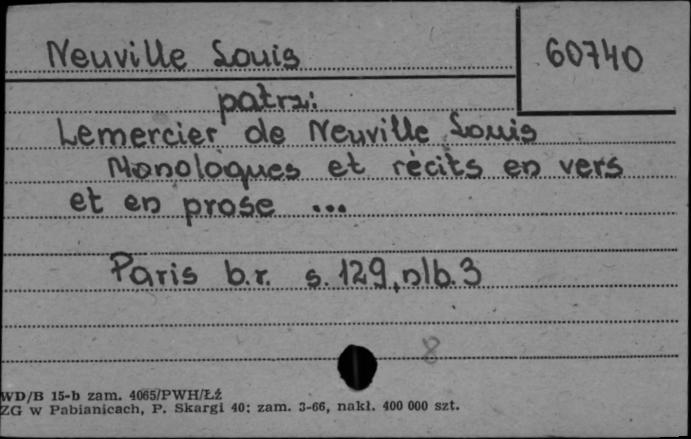 Neuville Louis
60740
patrz:
Lemercier de Neuville Louis
Monologues et récits en vers
et en prose ...
Paris b.r. s. 129, nlb. 3
8
WD/B 15-b zam. 4065/PWH/Łź
ZG w Pabianicach, P. Skargi 40; zam. 3-66, nakł. 400 000 szt.